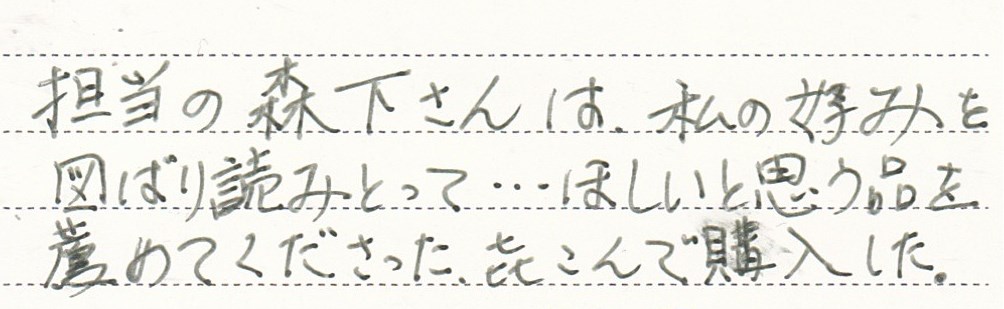 担当の森下さんは、私の好みを
図ばり読みとって…ほしいと思う品を
薦めてくださった、㐂こんで購入した。